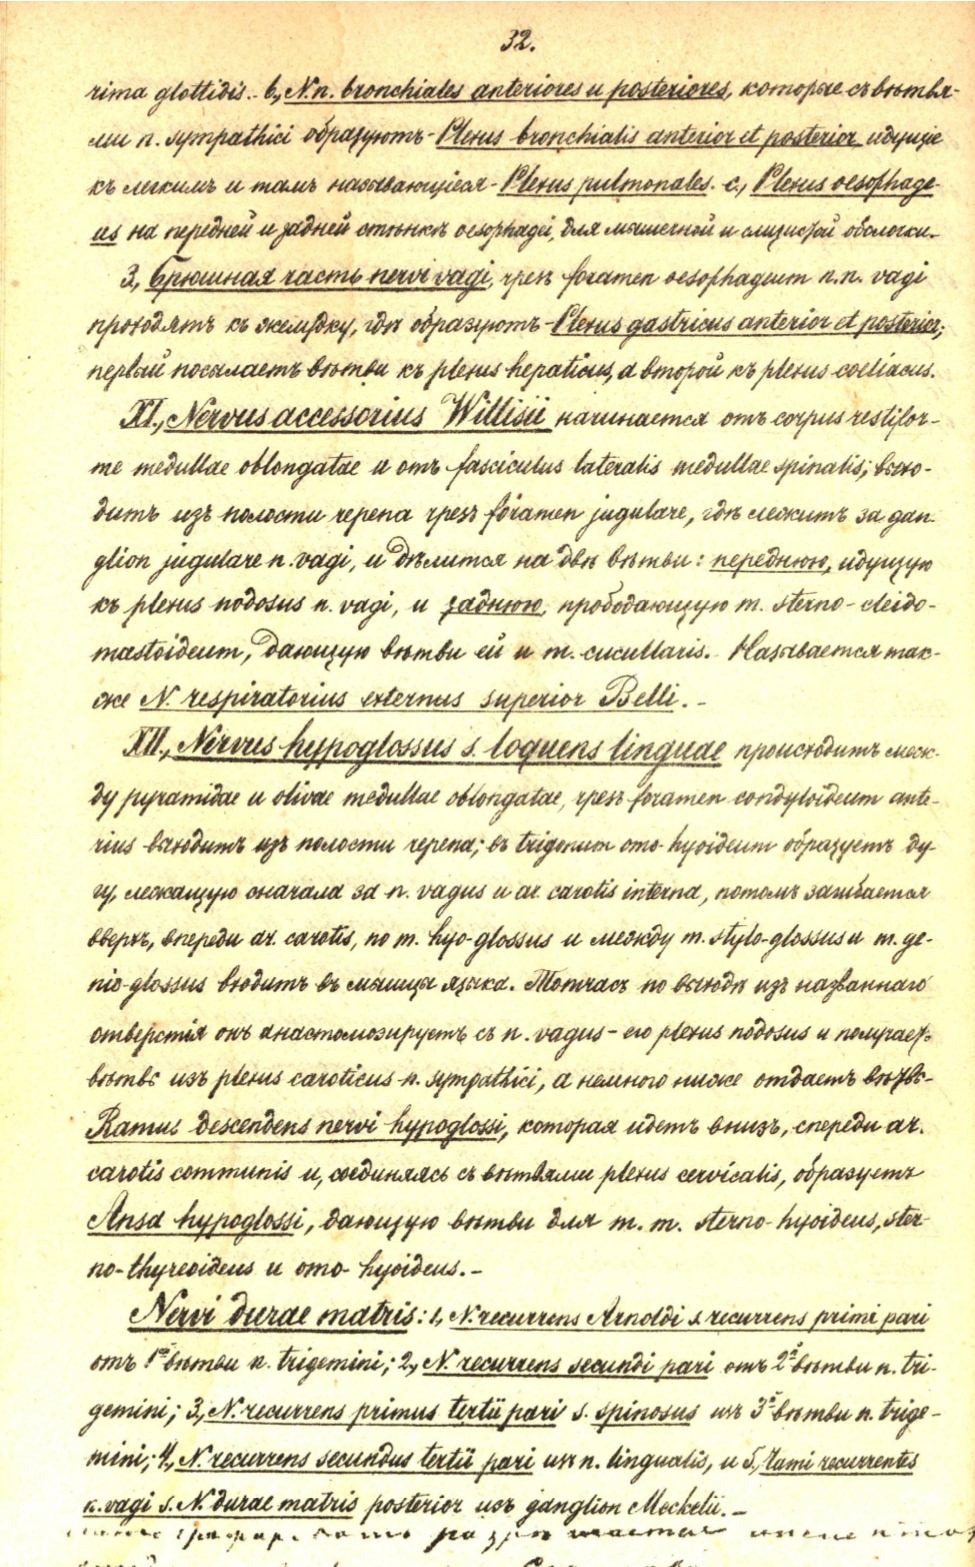 32.
rima glottidis.- b, N.n. bronchiales anteriores и posteriores, которые съ вѣтвя-
ми n. sympathici образуютъ - Plexus bronchialis anterior et posterior идущіе
къ легкимъ и тамъ называющіеся - Plexus pulmonales. c., Plexus oesophage-
us на передней и задней стѣнкѣ oesophagei, для мышечной и слизистой оболочки.-
3, Брюшная часть nervi vagi, чрезъ foramen oesophageum n.n. vagi
проходятъ къ желудку, гдѣ образуютъ - Plexus gastricus anterior et posterior;
первый посылаетъ вѣтви къ plexus hepaticus, а второй къ plexus coeliacus.
XI., Nervus accessorius Willisii начинается отъ corpus restifor-
me medullae oblongatae и отъ fasciculus lateralis medullae spinalis; выхо-
дитъ изъ полости черепа чрезъ foramen jugulare, гдѣ лежитъ за gan-
glion jugulare n. vagi, и дѣлится на двѣ вѣтви: переднюю, идущую
къ plexus nodosus n. vagi, и заднюю, прободающую m. sterno-cleido-
mastoideum, дающую вѣтви ей и m. cucullaris. Называется так-
же N. respiratorius externus superior Belli.-
XII., Nervus hypoglossus s. loquens linguae происходитъ меж-
ду pyramidae и olivae medullae oblongatae, чрезъ foramen condyloideum ante-
rius выходитъ изъ полости черепа; въ trigonum omo-hyoideum образуетъ ду-
гу, лежащую сначала за n. vagus и ar. carotis interna, потомъ загибается
вверхъ, впереди ar. carotis, по m. hyo-glossus и между m. stylo-glossus и m. ge-
nio-glossus входитъ въ мышцы языка. Тотчасъ по выходѣ изъ названнаго
отверстія онъ анастомозируетъ съ n. vagus - его plexus nodosus и получаетъ
вѣтвь изъ plexus caroticus n. sympathici, а немного ниже отдаетъ вѣтвь-
Ramus descendens nervi hypoglossi, которая идетъ внизъ, спереди ar.
carotis communis и, соединяясь съ вѣтвями plexus cervicalis, образуетъ
Ansa hypoglossi, дающую вѣтви для m. m. sterno-hyoideus, ster-
no-thyreoideus и omo-hyoideus.-
Nervi durae matris: 1, N. recurrens Arnoldi s. recurrens primi pari
отъ 1й вѣтви n. trigemini; 2, N. recurrens secundi pari отъ 2й вѣтви n. tri-
gemini; 3, N. recurrens primus tertii pari s. spinosus изъ 3й вѣтви n. trige-
mini; 4, N. recurrens secundus tertii pari изъ n. lingualis, и 5, rami recurrentes
n. vagi s. N. durae matris posterior изъ ganglion Meckelii.-